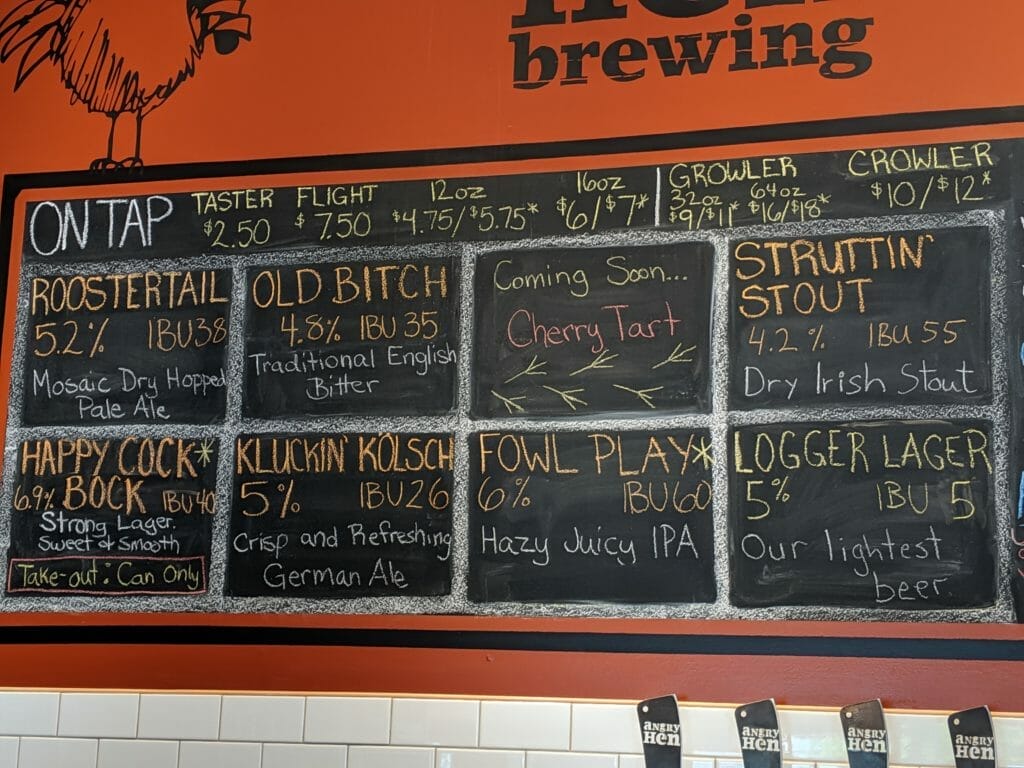 Hen
brewing
ON TAP
TASTER
$2.50
FLIGHT
$7.50
12oz
$4.75/$5.75*
16oz
$6/$7*
GROWLER
32oz 64oz
$9/$11* $16/$18*
CROWLER
$10/$12*
ROOSTERTAIL
5.2% IBU 38
Mosaic Dry Hopped
Pale Ale
OLD BITCH
4.8% IBU 35
Traditional English
Bitter
Coming Soon...
Cherry Tart
STRUTTIN'
STOUT
4.2% IBU 55
Dry Irish Stout
HAPPY COCK*
6.9% BOCK IBU 40
Strong Lager.
Sweet & Smooth
Take-out: Can Only
KLUCKIN' KÖLSCH
5% IBU 26
Crisp and Refreshing
German Ale
FOWL PLAY*
6% IBU 60
Hazy Juicy IPA
LOGGER LAGER
5% IBU 5
Our lightest
beer.
ANGRY
Hen
ANGRY
Hen
ANGRY
Hen
ANGRY
Hen